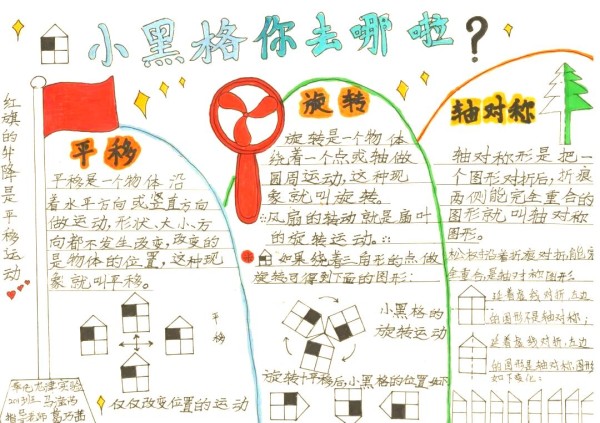 小黑格你去哪啦？
红旗的升降是平移运动
平移
平移是一个物体沿
着水平方向或竖直方向
做运动，形状、大小、方
向都不发生改变，改变的
是物体的位置，这种现
象就叫平移。
平移
仅仅改变位置的运动
旋转
旋转是一个物体
绕着一个点或轴做
圆周运动，这种现
象就叫旋转。
风扇的转动就是扇叶
的旋转运动。
如果绕着三角形的点做
旋转可得到下面的图形：
小黑格的
旋转运动
旋转+平移后，小黑格的位置如下
轴对称
轴对称形是把一
个图形对折后，折痕
两侧能完全重合的
图形就叫轴对称
图形。
松树沿着折痕对折，能完
全重合，是轴对称图形。
延着虚线对折，左边
的图形不是轴对称；
延着虚线对折，左边
的图形是轴对称图形
如下变化：
指导老师